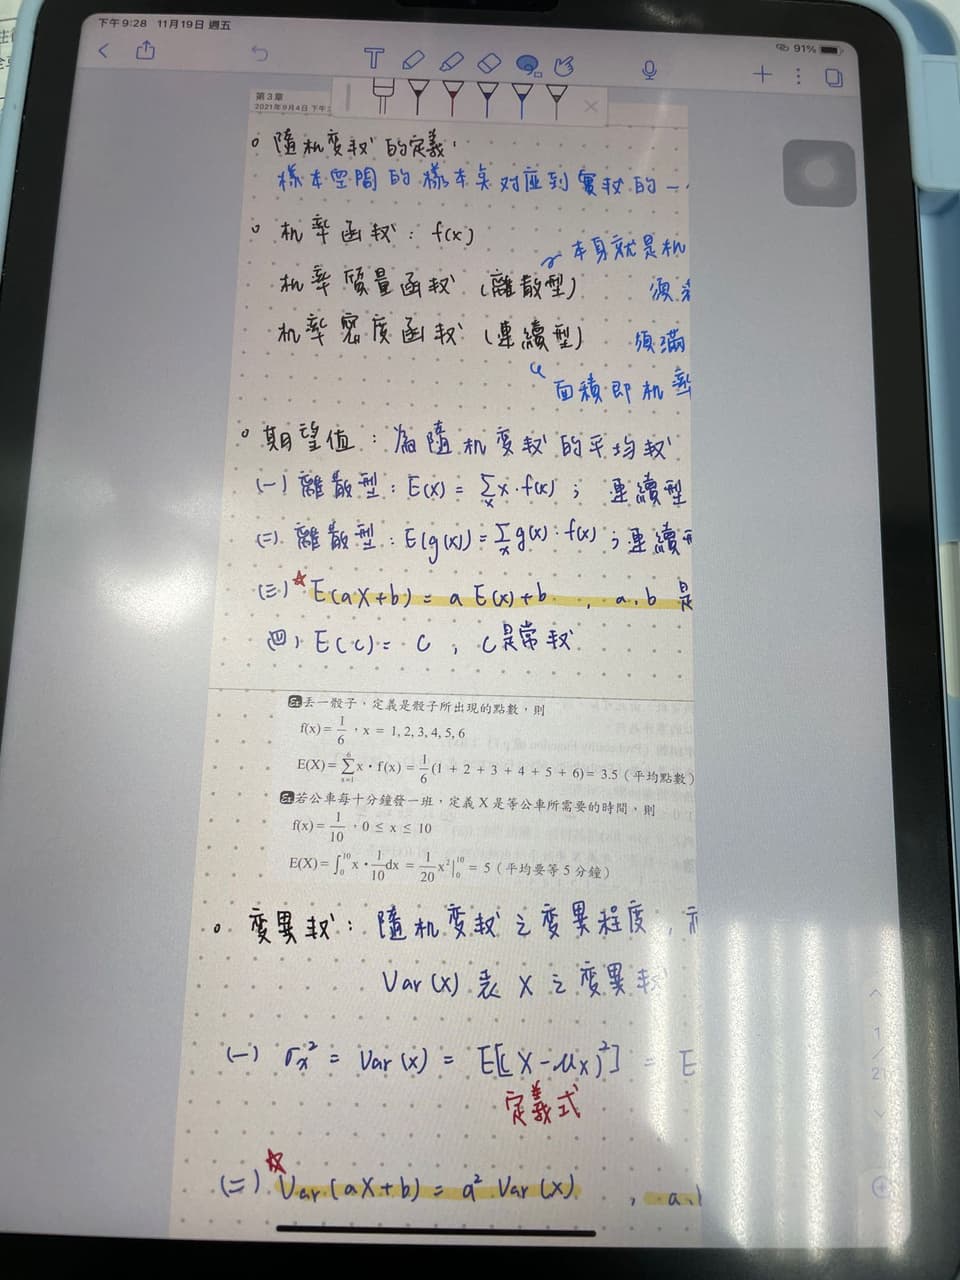 下午9:28 11月19日 週五
91%
T
第3章
2021年9月4日 下午
。隨机变权的定義:
樣本空間的樣本点对应到實权的一
。机率函权: f(x)
本身就是机
机率質量函权 (離散型)
須
机率密度函权 (連續型) 須滿
面積即机率
。期望值: 為隨机变权的平均权
(一) 離散型: E(X) = Σx x·f(x) ; 連續型
(二) 離散型: E(g(x)) = Σx g(x)·f(x) ; 連續
(三) ☆ E(aX+b) = a E(x)+b , a,b 是
(四) E(c) = c , c是常权
Ex 丟一骰子,定義是骰子所出現的點數,則
f(x) = 1/6 , x = 1, 2, 3, 4, 5, 6
E(X) = Σ x • f(x) = 1/6 (1 + 2 + 3 + 4 + 5 + 6) = 3.5 (平均點數)
Ex 若公車每十分鐘發一班,定義 X 是等公車所需要的時間,則
f(x) = 1/10 , 0 ≤ x ≤ 10
E(X) = ∫₀¹⁰ x • 1/10 dx = 1/20 x²|₀¹⁰ = 5 (平均要等 5 分鐘)
。变異权: 隨机变权之变異程度,
Var(x) 表 X 之变異权
(一) σx² = Var(x) = E[(X-μx)²] = E
定義式
(二) ☆ Var(aX+b) = a² Var(x) , a,
1
/
21